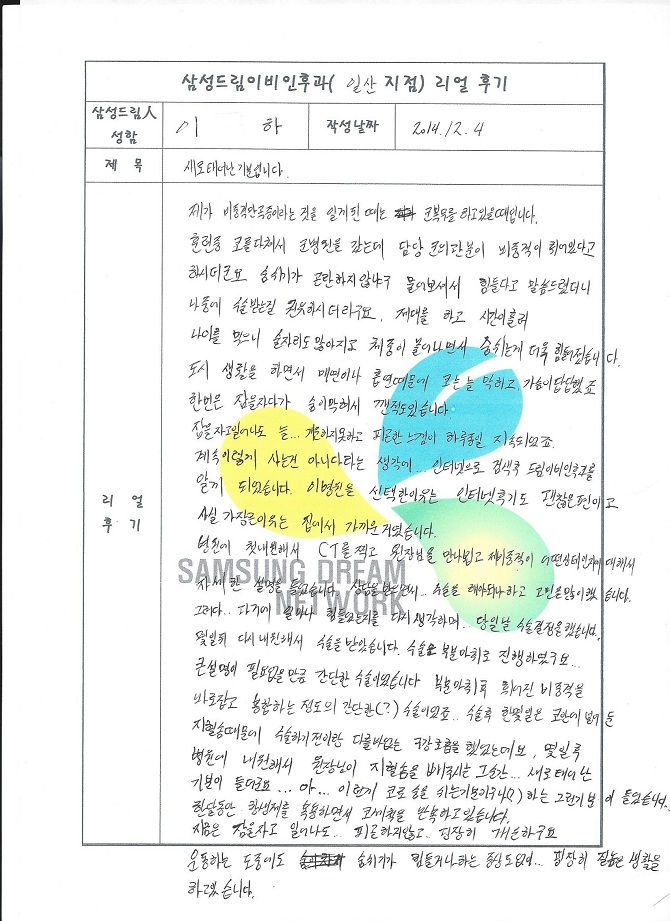 삼성드림이비인후과( 일산 지점) 리얼 후기
삼성드림人
성함
이 하
작성날짜
2014. 12. 4
제 목
새로태어난기분입니다.
리 얼
후 기
제가 비중격만곡증이라는 것을 알게된 때는 군복무를 하고있을때입니다.
훈련중 코를다쳐서 군병원을 갔는데 담당 군의관분이 비중격이 휘어있다고
하시더군요 숨쉬기가 곤란하지않냐구 물어보셔서 힘들다고 말씀드렸더니
나중에 수술받는걸 권유하시더라구요. 제대를 하고 시간이흘러
나이를 먹으니 술자리도 많아지고 체중이 불어나면서 숨쉬는게 더욱 힘들어졌습니다.
도시 생활을 하면서 매연이나 흡연때문에 코는늘 막히고 가슴이답답했죠
한번은 잠을자다가 숨이막혀서 깬적도있습니다
잠을자고일어나도 늘... 개운하지못하고 피곤한 느낌이 하루종일 지속되었죠.
계속이렇게 사는건 아니다라는 생각에... 인터넷으로 검색후 드림이비인후과를
알게 되었습니다. 이병원을 선택한이유는 인터넷후기도 괜찮은편이고
사실 가장큰이유는 집에서 가까운거였습니다.
병원에 첫내원해서 CT를찍고 원장님을 만나뵙고 제비중격이 어떤상태인지에 대해서
자세한 설명을 들었습니다. 상담을받으면서... 수술을 해야되나하고 고민을많이했습니다.
그러다... 과거에 얼마나 힘들었는지를 다시생각하며... 당일날 수술결정을했습니다.
몇일뒤 다시내원해서 수술을받았습니다. 수술은 부분마취로 진행하였구요...
큰설명이 필요없을만큼 간단한 수술이었습니다 부분마취후 휘어진 비중격을
바로잡고 봉합하는 정도의 간단한(?) 수술이었죠.. 수술후 한몇일은 코안에 넣어둔
지혈솜때문에 수술하기전이랑 다를바없는 구강호흡을 했었는데요, 몇일후
병원에 내원해서 원장님이 지혈솜을 빼주시는 그순간... 새로태어난
기분이 들더군요... 아... 이런게 코로 숨을 쉬는기분이구나(?) 하는 그런기분이 들었습니다..
한달동안 항생제를 복용하면서 코세척을 반복하고있습니다.
지금은 잠을자고 일어나도.. 피곤하지않고.. 굉장히 개운하구요
운동하는 도중에도 숨쉬기가 힘들거나하는 증상도없어... 굉장히 질높은 생활을
하고있습니다.
SAMSUNG DREAM
NETWORK